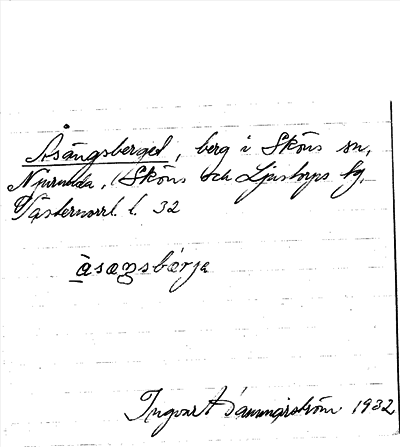 Åsängsberget, berg i Sköns sn,
Njurunda, Sköns och Ljustorps tg.
Västernorrl. l. 32
àsaŋsbærja
Ingvar 1932